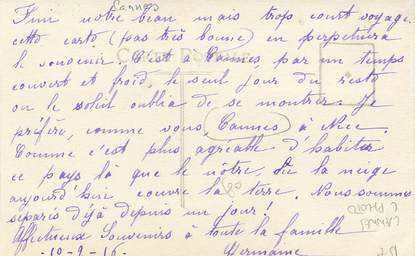 Cannes
Fini notre beau mais trop court voyage
cette carte (pas très bonne) en perpétuera
le souvenir. C'est à Cannes, par un temps
couvert et froid, le seul jour du reste
où le soleil oublia de se montrer. Je
préfère, comme vous, Cannes à Nice.
Comme c'est plus agréable d'habiter
ce pays là que le nôtre, la neige
aujourd'hui couvre la terre. Nous sommes
séparés déjà depuis un jour!
Affectueux souvenirs à toute la famille
Germaine
CARTE POSTALE
CANNES